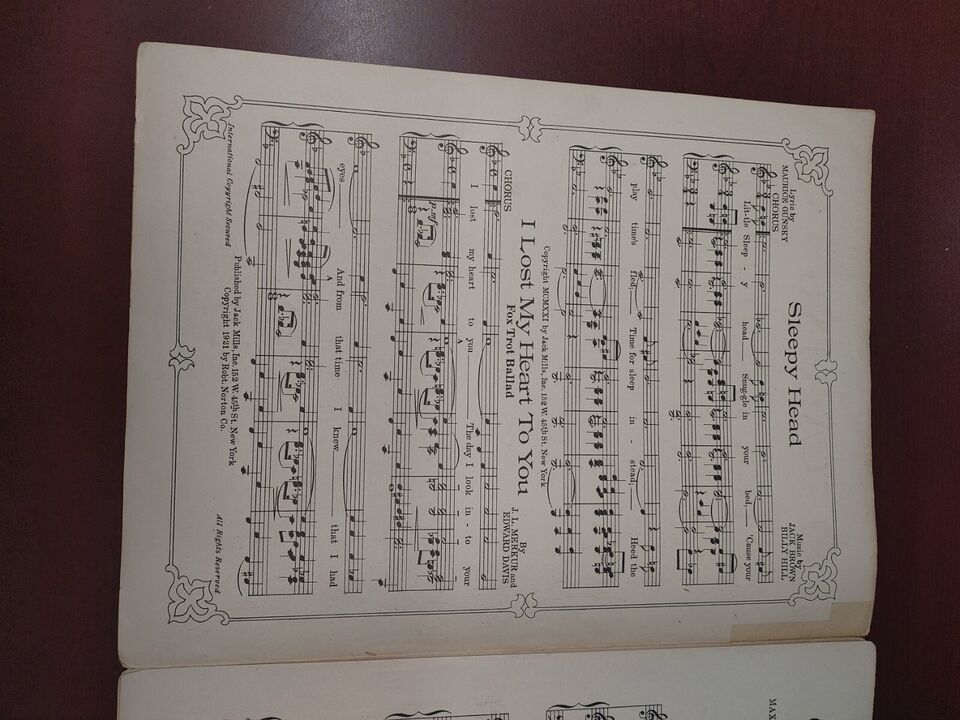 Sleepy Head
Lyric by
MAURICE GUNSKY
Music by
JACK BROWN
BILLY HILL
CHORUS
Lit-tle Sleep - y head Snug-gle in your bed, 'Cause your
play time's fled, Time for sleep in - stead, Heed the
Copyright MCMXXI by Jack Mills, Inc. 152 W. 45th St. New York
I Lost My Heart To You
Fox Trot Ballad
By
J. L. MERKUR and
EDWARD DAVIS
CHORUS
I lost my heart to you The day I look in - to your
p-mf
eyes And from that time I knew that I had
Published by Jack Mills, Inc. 152 W. 45th St. New York
Copyright 1921 by Robt. Norton Co.
International Copyright Secured
All Rights Reserved
MAX